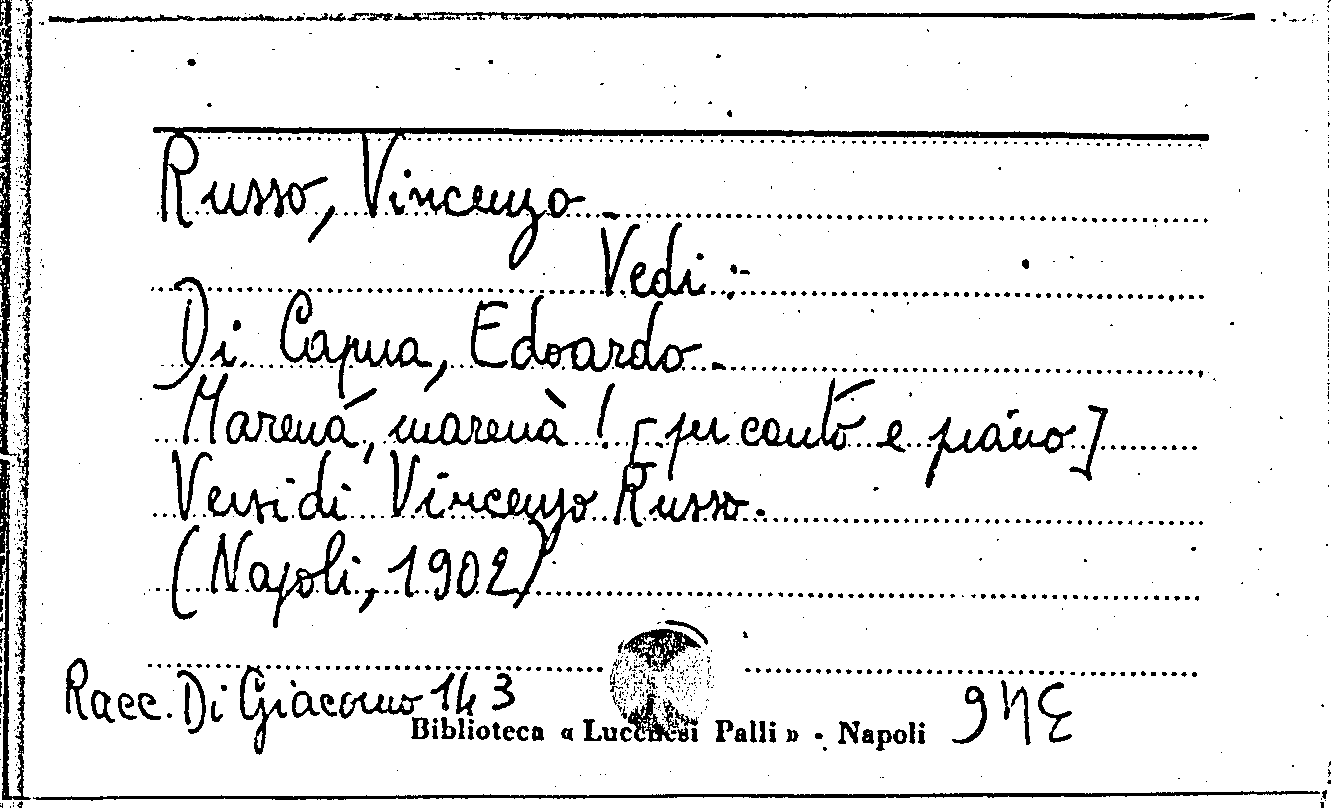 Russo, Vincenzo.
Vedi:-
Di Capua, Edoardo.
Marenà, marenà! [per canto e piano]
Versi di Vincenzo Russo.
(Napoli, 1902)
Racc. Di Giacomo 143
Biblioteca « Lucchesi Palli » - Napoli